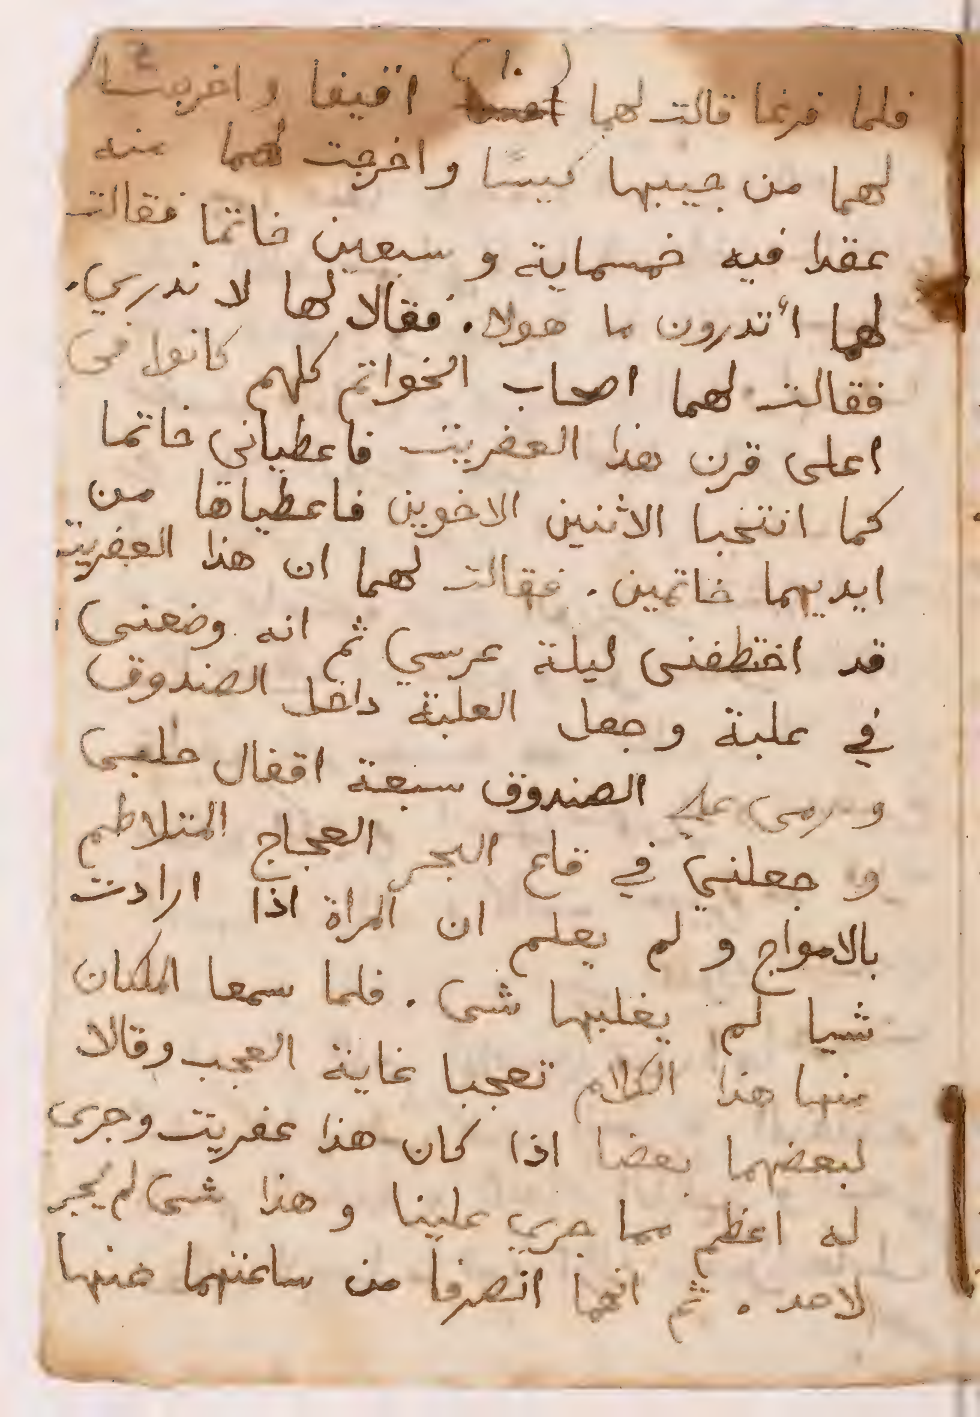 فلما فرغا قالت لهما اقيفا واخرجت
لهما من جيبها كيسًا واخرجت لهما منه
عقدا فيه خمسماية و سبعين خاتما فقالت
لهما أتدرون ما هولا. فقالا لها لا ندري.
فقالت لهما اصحاب الخواتم كلهم كانوا في
اعلى قرن هذا العفريت فاعطياني خاتما
كما انتخبا الاثنين الاخوين فاعطياها من
ايديهما خاتمين. فقالت لهما ان هذا العفريت
قد اختطفنى ليلة عرسي ثم انه وضعنى
في علبة وجعل العلبة داخل الصندوق
ورمى على الصندوق سبعة اقفال
و جعلني في قاع البحر العجاج المتلاطم
بالامواج و لم يعلم ان المراة اذا ارادت
شيا لم يغلبها شى. فلما سمعا الملكان
منها هذا الكلام تعجبا غاية العجب وقالا
لبعضهما بعضا اذا كان هذا عفريت وجرى
له اعظم مما جري علينا و هذا شى لم يجر
لاحد. ثم انهما انصرفا من ساعتهما عنها